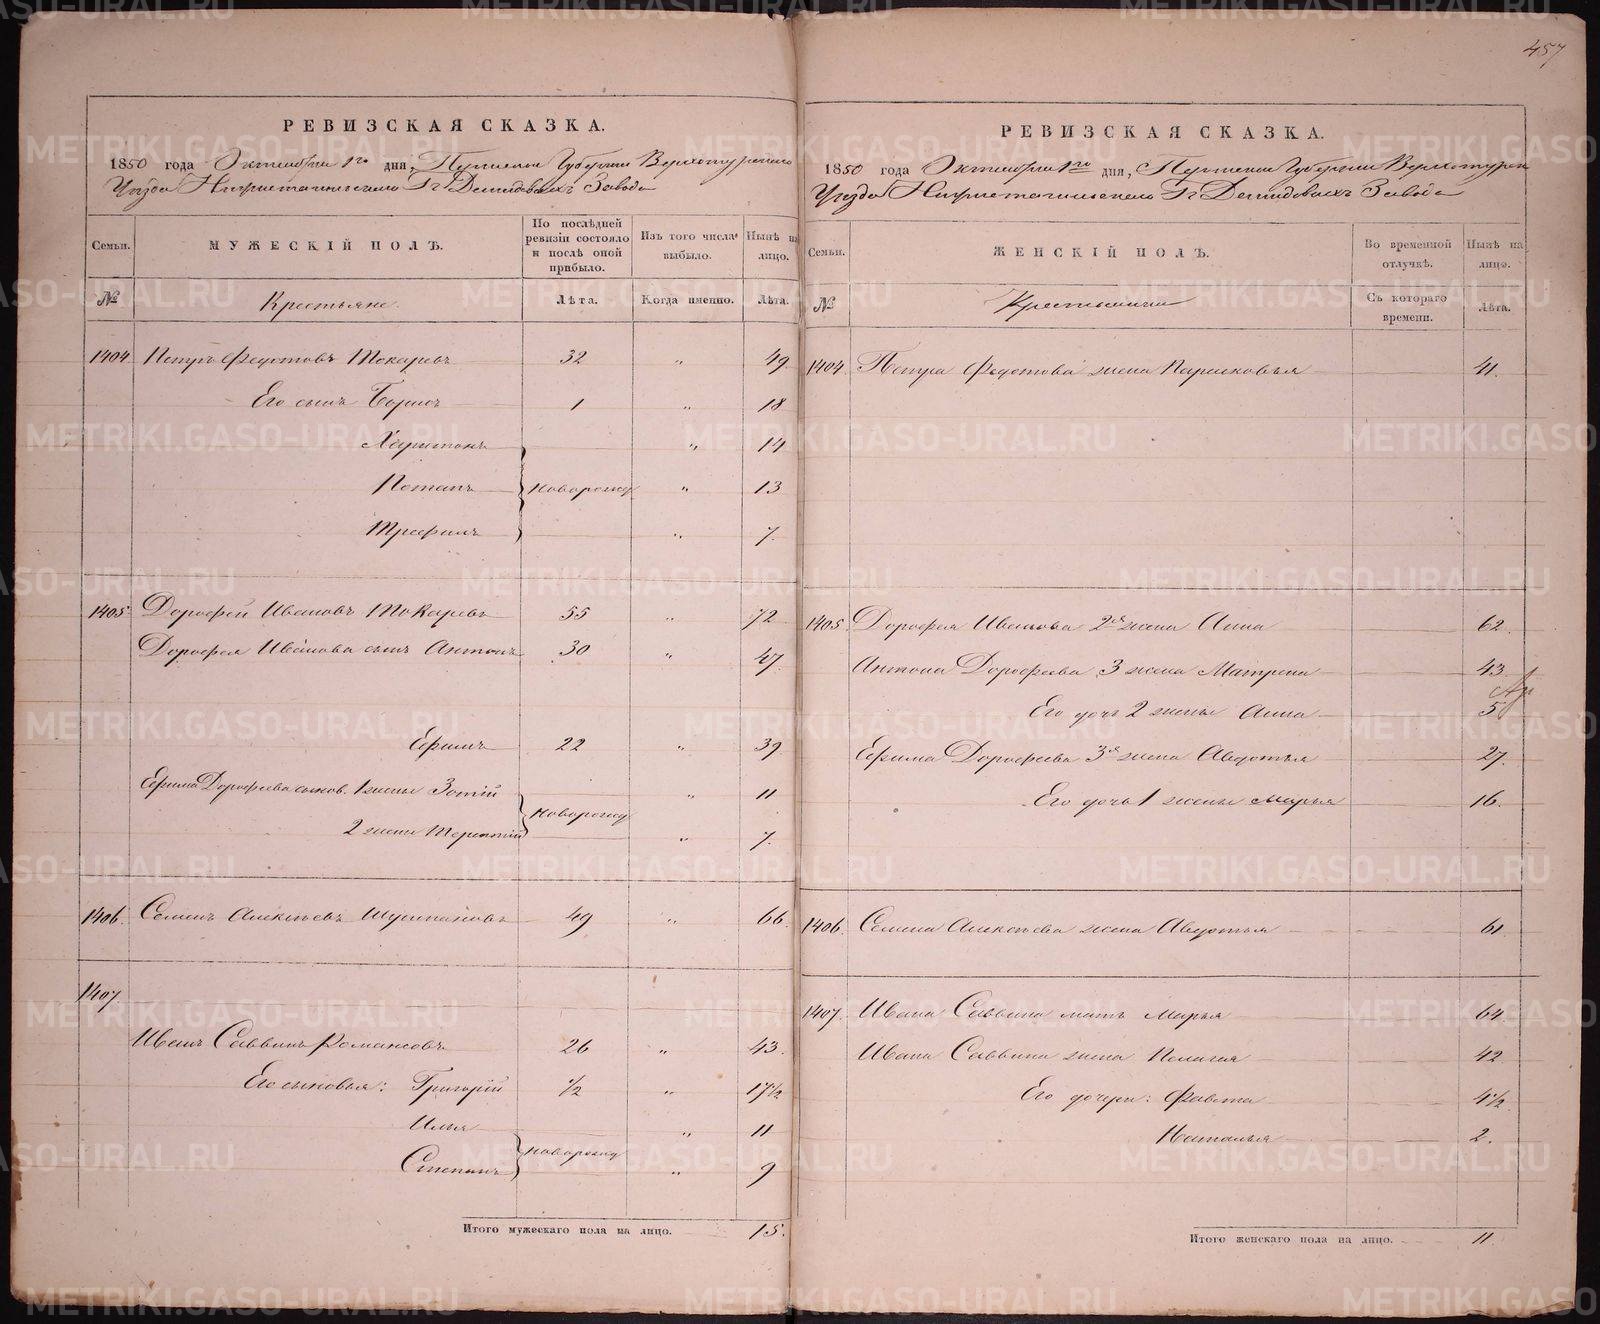 457
РЕВИЗСКАЯ СКАЗКА.
1850 года Октября 1го дня, Пермской Губернии Верхотурскаго
Уѣзда Нижнетагильскаго Гг Демидовыхъ Завода
Семьи.
МУЖЕСКІЙ ПОЛЪ.
По послѣдней ревизіи состояло и послѣ оной прибыло.
Изъ того числа выбыло.
Нынѣ на лицо.
№
Крестьяне.
Лѣта.
Когда именно.
Лѣта.
1404 Петръ Федотовъ Токаревъ 32 " 49
Его сынъ Борисъ 1 " 18
Харитонъ " 14
Потапъ новорожд " 13
Трефилъ " 7.
1405 Дорофей Ивановъ Токаревъ 55 " 72
Дорофея Иванова сынъ Антонъ 30 " 47
Ефимъ 22 " 39
Ефима Дорофеева сынов. 1 жены Зотій " 11
новорожд
2 жены Терентій " 7.
1406. Семенъ Алексѣевъ Шушпановъ 49 " 66
1407
Иванъ Саввинъ Романсовъ 26 " 43.
Его сыновья: Григорій 1/2 " 17 1/2
Илья " 11
новорожд
Степанъ " 9
Итого мужескаго пола на лицо. 15.
РЕВИЗСКАЯ СКАЗКА.
1850 года Октября 1го дня, Пермской Губерніи Верхотурск
Уѣзда Нижнетагильскаго Гг Демидовыхъ Завода
Семьи.
ЖЕНСКІЙ ПОЛЪ.
Во временной отлучкѣ.
Нынѣ на лицо.
№
Крестьянки
Съ котораго времени.
Лѣта.
1404. Петра Федотова жена Парасковья 41.
1405. Дорофея Иванова 2я жена Анна 62.
Антона Дорофеева 3 жена Матрена 43.
Его дочь 2 жены Анна 5
Ефима Дорофеева 3я жена Авдотья 27.
Его дочь 1 жены Марья 16.
1406. Семена Алексѣева жена Авдотья 61
1407. Ивана Саввина мать Марья 64
Ивана Саввина жена Пелагея 42
Его дочери: Фавста 4 1/2
Наталья 2.
Итого женскаго пола на лицо. 11.
METRIKI.GASO-URAL.RU